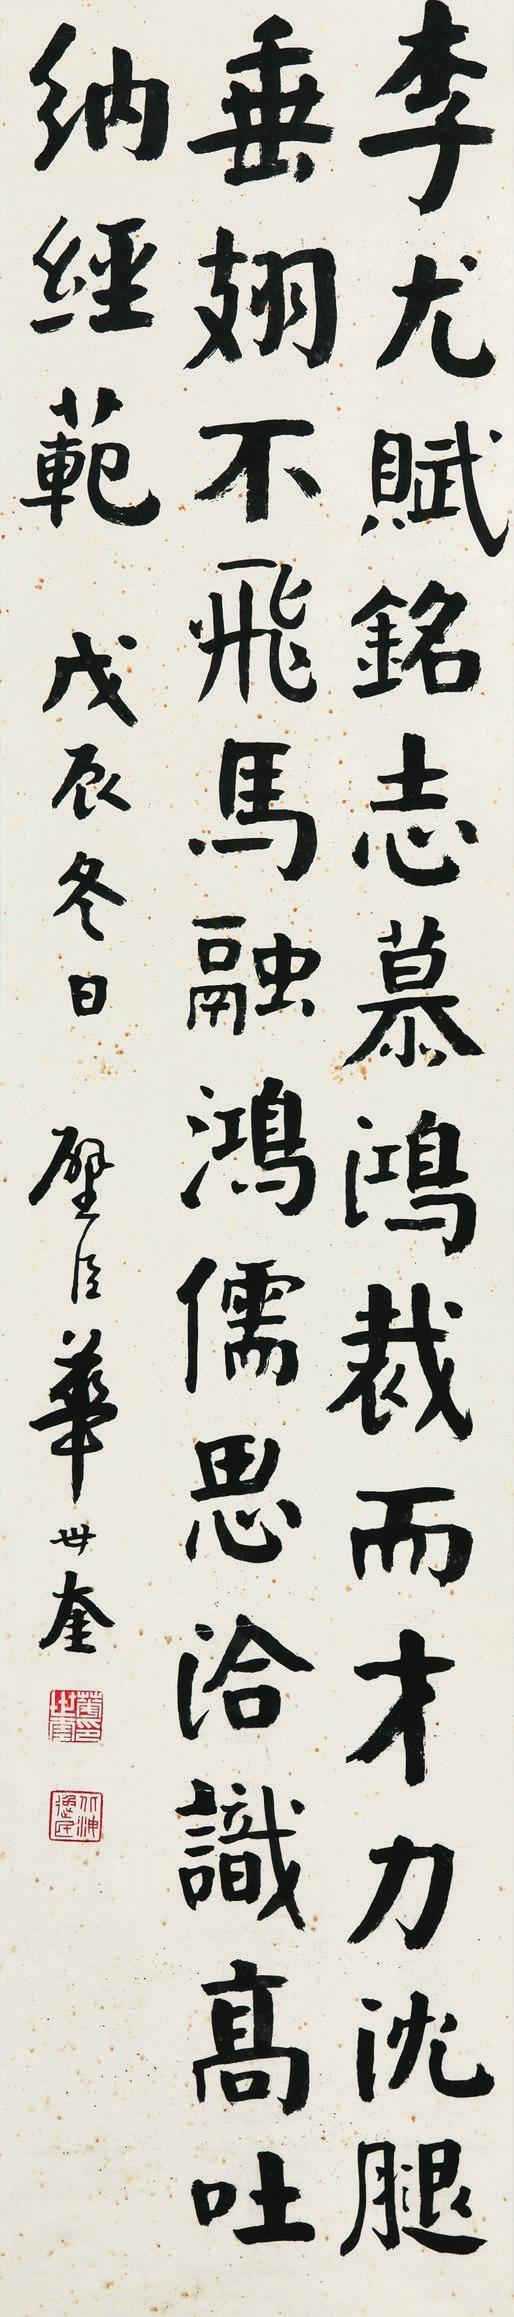 李尤賦銘志慕鴻裁而才力沈腿
垂翅不飛馬融鴻儒思洽識高吐
納經範 戊辰冬日 璧臣華世奎